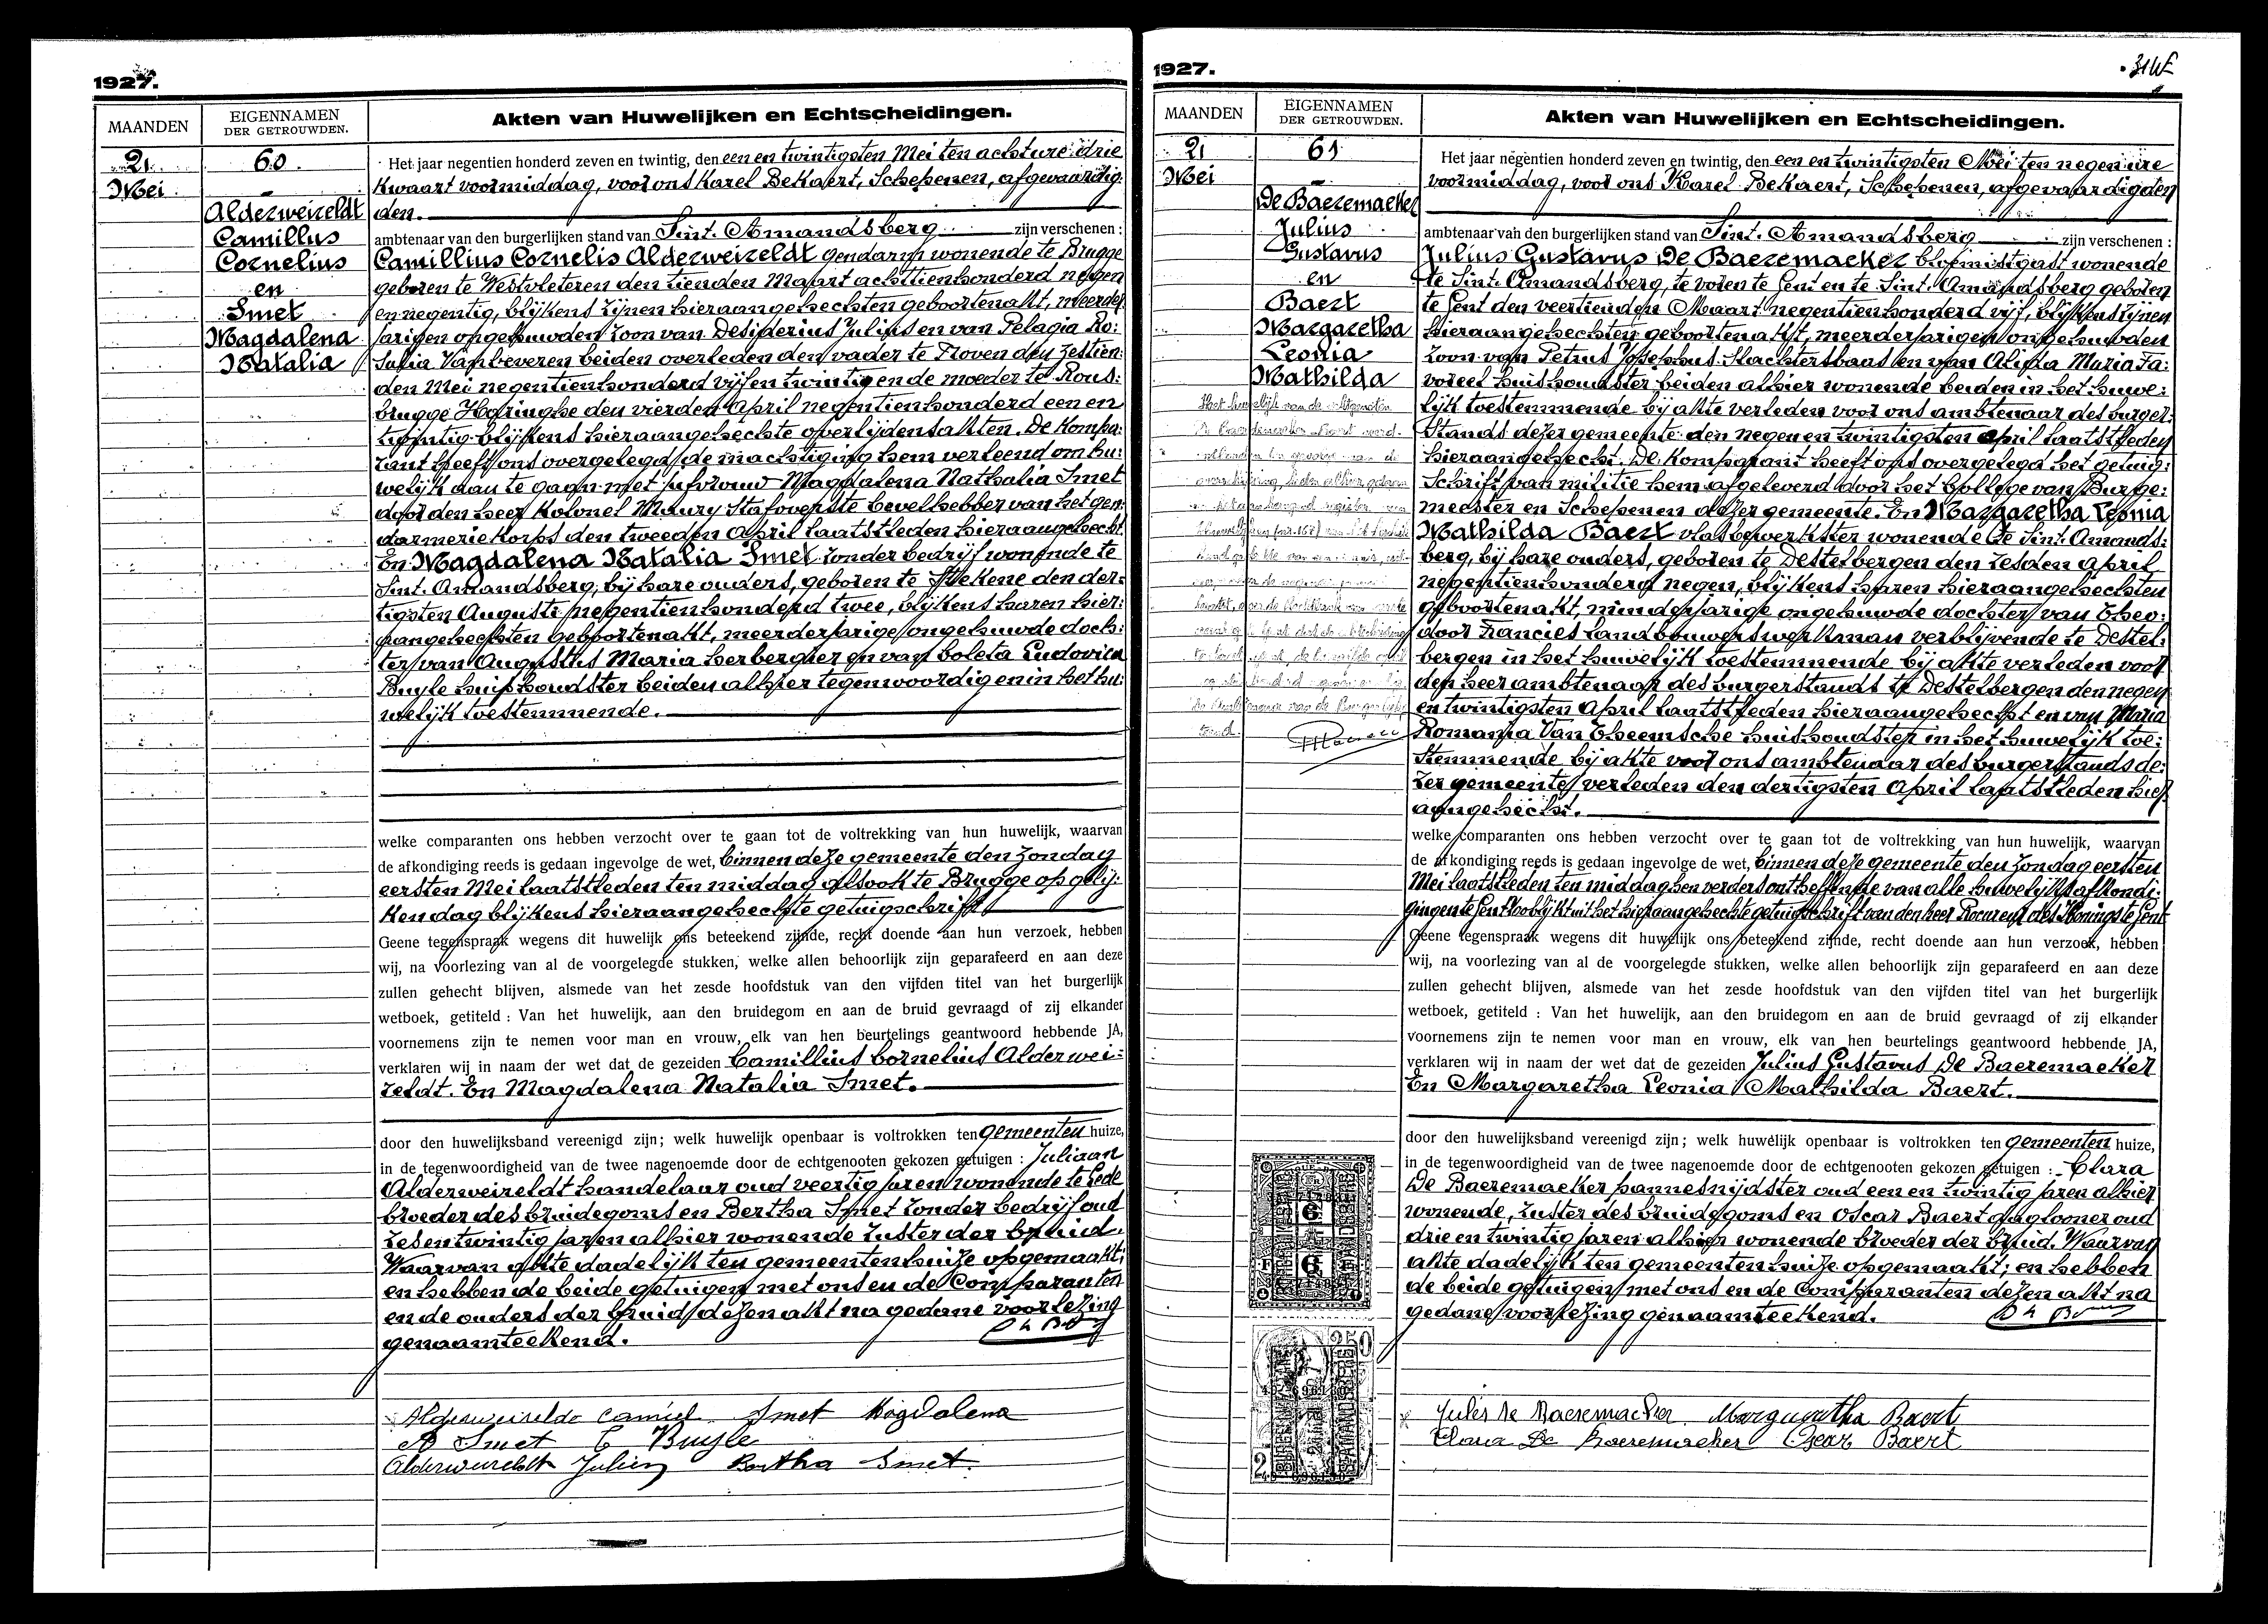 1927.
MAANDEN
EIGENNAMEN
DER GETROUWDEN.
Akten van Huwelijken en Echtscheidingen.
21
Mei
60
Alderweireldt
Camillus
Cornelius
en
Smet
Magdalena
Natalia
Het jaar negentien honderd zeven en twintig, den een en twintigsten Mei ten acht ure drie
kwaart voormiddag, voor ons Karel Bekaert, Schepenen, afgevaardig:
den.
ambtenaar van den burgerlijken stand van Sint. Amandsberg zijn verschenen :
Camillius Cornelis Alderweireldt gendarm wonende te Brugge
geboren te Westvleteren den tienden Maart achttienhonderd negen
en negentig, blijkens zijnen hieraangehechten geboortenakt, meerder
jarigen ongehuwden zoon van Desiderius Julius en van Pelagia Ro:
salia Vanbeveren beiden overleden den vader te Proven den zestien:
den Mei negentienhonderd vijf en twintig en de moeder te Rous:
brugge Haringhe den vierden April negentienhonderd een en
twintig blijkens hieraangehechte overlijdensakten. De kompa:
rant heeft ons overgelegd de machtiging hem verleend om hu:
welijk aan te gaan met jufvrouw Magdalena Nathalia Smet
door den heer Kolonel Maury Stafoverste bevelhebber van het gen:
darmerie korps den tweeden April laatstleden hieraangehecht.
En Magdalena Natalia Smet zonder bedrijf wonende te
Sint. Amandsberg, bij hare ouders, geboren te Stekene den der:
tigsten Augusti negentienhonderd twee, blijkens haren hier:
aangehechten geboortenakt, meerderjarige ongehuwde doch:
ter van Augustus Maria herbergier en van Coleta Ludovica
Buyle huishoudster beiden alhier tegenwoordig en in het hu:
welijk toestemmende.
welke comparanten ons hebben verzocht over te gaan tot de voltrekking van hun huwelijk, waarvan
de afkondiging reeds is gedaan ingevolge de wet, binnen deze gemeente den zondag
eersten Mei laatstleden ten middag alsook te Brugge op gelij:
ken dag blijkens hieraangehechte getuigschrift
Geene tegenspraak wegens dit huwelijk ons beteekend zijnde, recht doende aan hun verzoek, hebben
wij, na voorlezing van al de voorgelegde stukken, welke allen behoorlijk zijn geparafeerd en aan deze
zullen gehecht blijven, alsmede van het zesde hoofdstuk van den vijfden titel van het burgerlijk
wetboek, getiteld : Van het huwelijk, aan den bruidegom en aan de bruid gevraagd of zij elkander
voornemens zijn te nemen voor man en vrouw, elk van hen beurtelings geantwoord hebbende JA,
verklaren wij in naam der wet dat de gezeiden Camillius Cornelius Alderwei:
reldt. En Magdalena Natalia Smet.
door den huwelijksband vereenigd zijn; welk huwelijk openbaar is voltrokken ten gemeenten huize,
in de tegenwoordigheid van de twee nagenoemde door de echtgenooten gekozen getuigen : Juliaan
Alderweireldt handelaar oud veertig jaren wonende te Lede
broeder des bruidegoms en Bertha Smet zonder bedrijf oud
zes en twintig jaren alhier wonende zuster der bruid.
Waarvan akte dadelijk ten gemeentenhuize opgemaakt;
en hebben de beide getuigen met ons en de Comparanten
en de ouders der bruid dezen akt na gedane voorlezing
genaamteekend.
Alderweireldt Camiel Smet Magdalena
A Smet C Buyle
Alderweireldt Julien Bertha Smet
1927.
MAANDEN
EIGENNAMEN
DER GETROUWDEN.
Akten van Huwelijken en Echtscheidingen.
21
Mei
61
De Baeremaeker
Julius
Gustavus
en
Baert
Margaretha
Leonia
Mathilda
Het jaar negentien honderd zeven en twintig, den een en twintigsten Mei ten negen ure
voormiddag, voor ons Karel Bekaert, Schepenen, afgevaardigden
ambtenaar van den burgerlijken stand van Sint. Amandsberg zijn verschenen :
Julius Gustavus De Baeremaeker bloemistgast wonende
te Sint. Amandsberg, te voren te Gent en te Sint. Amandsberg geboren
te Gent den veertienden Maart negentienhonderd vijf, blijkens zijnen
hieraangehechten geboortenakt, meerderjarigen ongehuwden
zoon van Petrus Josephus slachtersbaas en van Alixia Maria Fa:
voreel huishoudster beiden alhier wonende beiden in het huwe:
lijk toestemmende bij akte verleden voor ons ambtenaar des burger:
stands dezer gemeente den negen en twintigsten April laatstleden
hieraangehecht. De komparant heeft ons overgelegd het getuig:
schrift van militie hem afgeleverd door het College van Burge:
meester en Schepenen dezer gemeente. En Margaretha Leonia
Mathilda Baert vlasbewerkster wonende te Sint. Amands:
berg, bij hare ouders, geboren te Destelbergen den zesden April
negentienhonderd negen, blijkens haren hieraangehechten
geboortenakt, minderjarige ongehuwde dochter van Theo:
door Francies landbouwerswerkman verblijvende te Destel:
bergen in het huwelijk toestemmende bij akte verleden voor
den heer ambtenaar des burgerstands te Destelbergen den negen
en twintigsten April laatstleden hieraangehecht en van Maria
Romania Van Theemsche huishoudster in het huwelijk toe:
stemmende bij akte voor ons ambtenaar des burgerstands de:
zer gemeente verleden den dertigsten April laatstleden hier
aangehecht.
welke comparanten ons hebben verzocht over te gaan tot de voltrekking van hun huwelijk, waarvan
de afkondiging reeds is gedaan ingevolge de wet, binnen deze gemeente den zondag eersten
Mei laatstleden ten middag en verders ontheffende van alle huwelijksafkondi:
gingen te Gent zoo blijkt uit het hieraangehechte getuigschrift van den heer Procureur des Konings te Gent
Geene tegenspraak wegens dit huwelijk ons beteekend zijnde, recht doende aan hun verzoek, hebben
wij, na voorlezing van al de voorgelegde stukken, welke allen behoorlijk zijn geparafeerd en aan deze
zullen gehecht blijven, alsmede van het zesde hoofdstuk van den vijfden titel van het burgerlijk
wetboek, getiteld : Van het huwelijk, aan den bruidegom en aan de bruid gevraagd of zij elkander
voornemens zijn te nemen voor man en vrouw, elk van hen beurtelings geantwoord hebbende JA,
verklaren wij in naam der wet dat de gezeiden Julius Gustavus De Baeremaeker
En Margaretha Leonia Mathilda Baert.
door den huwelijksband vereenigd zijn; welk huwelijk openbaar is voltrokken ten gemeenten huize,
in de tegenwoordigheid van de twee nagenoemde door de echtgenooten gekozen getuigen : Clara
De Baeremaeker pannesnijdster oud een en twintig jaren alhier
wonende, zuster des bruidegoms en Oscar Baert daglooner oud
drie en twintig jaren alhier wonende broeder der bruid. Waarvan
akte dadelijk ten gemeentenhuize opgemaakt; en hebben
de beide getuigen met ons en de Comparanten dezen akt na
gedane voorlezing genaamteekend.
Jules De Baeremaeker Margaretha Baert
Clara De Baeremaeker Oscar Baert